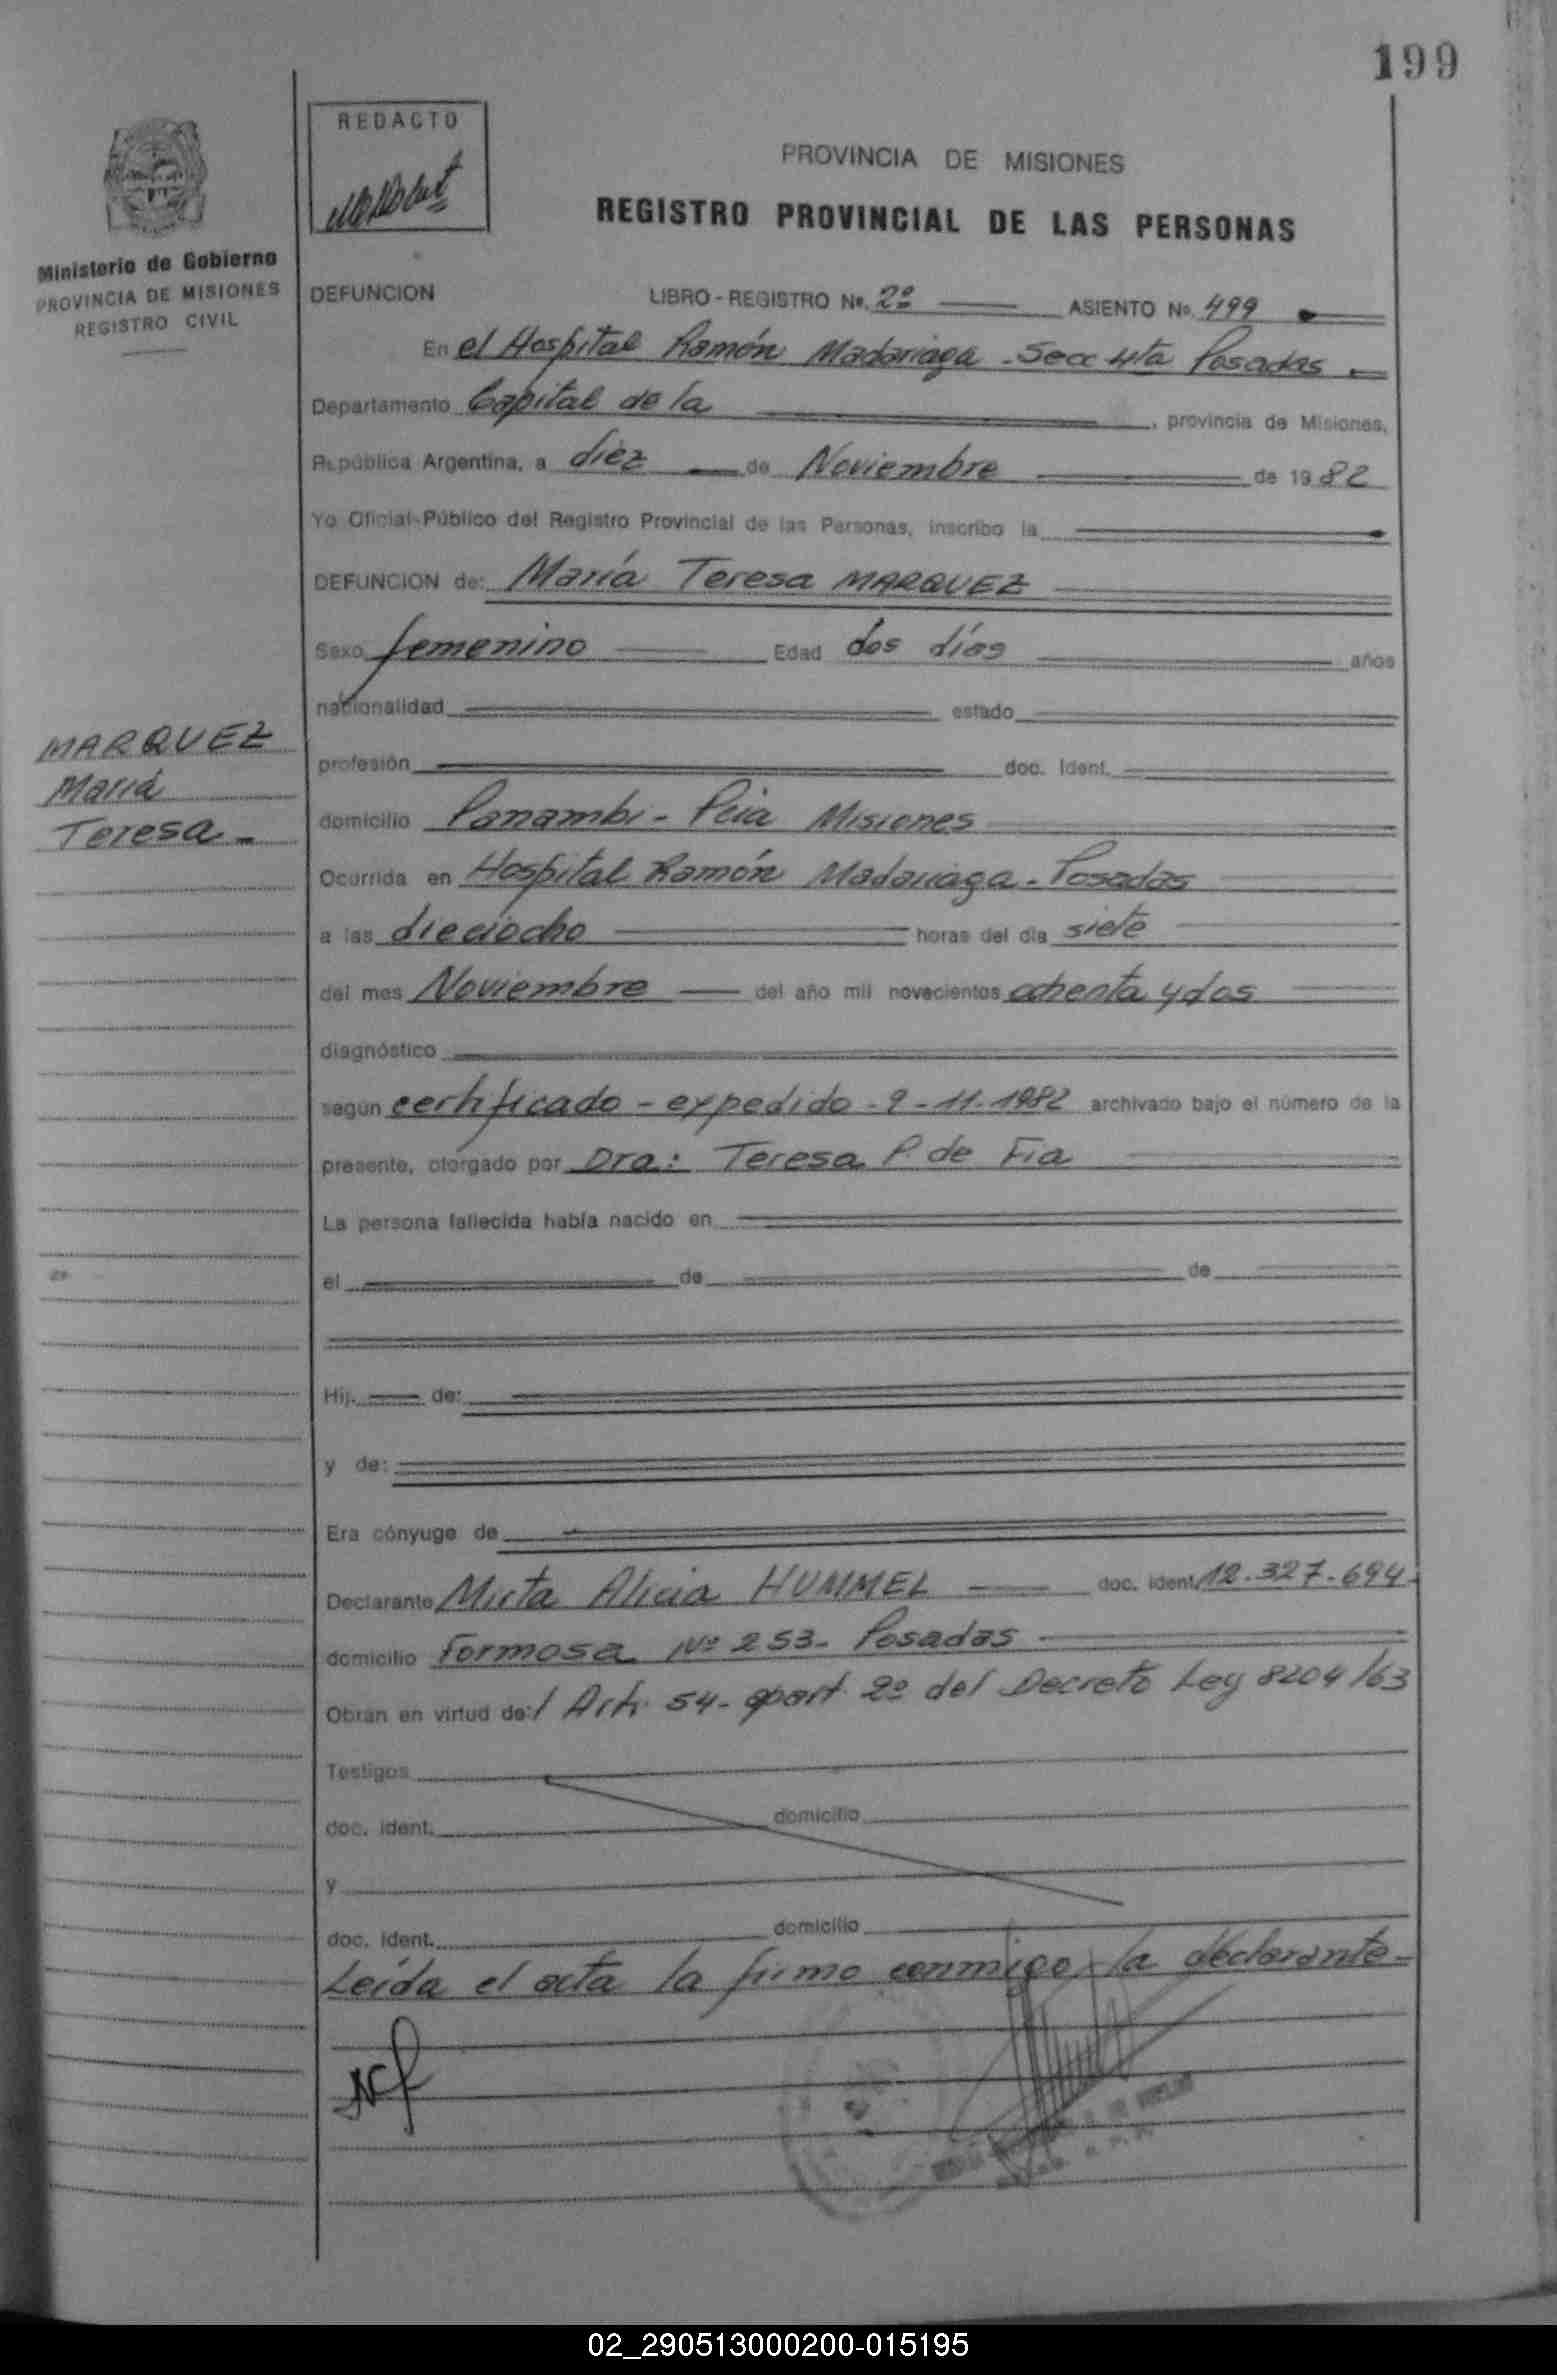 199
REDACTO
PROVINCIA DE MISIONES
REGISTRO PROVINCIAL DE LAS PERSONAS
Ministerio de Gobierno
PROVINCIA DE MISIONES
REGISTRO CIVIL
DEFUNCION LIBRO-REGISTRO Nº. 2º ASIENTO Nº. 499
En el Hospital Ramón Madariaga - Secc 4ta Posadas
Departamento Capital de la , provincia de Misiones,
República Argentina, a diez de Noviembre de 1982
Yo Oficial Público del Registro Provincial de las Personas, inscribo la
DEFUNCION de: María Teresa MARQUEZ
Sexo femenino Edad dos días años
nacionalidad estado
MARQUEZ
María
Teresa -
profesión doc. Ident.
domicilio Panambi - Pcia Misiones
Ocurrida en Hospital Ramón Madariaga - Posadas
a las dieciocho horas del día siete
del mes Noviembre del año mil novecientos ochenta y dos
diagnóstico
según certificado - expedido - 9 - 11 - 1982 archivado bajo el número de la
presente, otorgado por Dra: Teresa P. de Fia
La persona fallecida había nacido en
el de de
Hij. de:
y de:
Era cónyuge de
Declarante Mirta Alicia HUMMEL doc. ident. 12.327.694
domicilio Formosa Nº 253 - Posadas
Obran en virtud de: l Art. 54 - apart. 2º del Decreto Ley 8204/63
Testigos
doc. ident. domicilio
y
doc. ident. domicilio
Leída el acta la firmo conmigo la declarante -
02_290513000200-015195